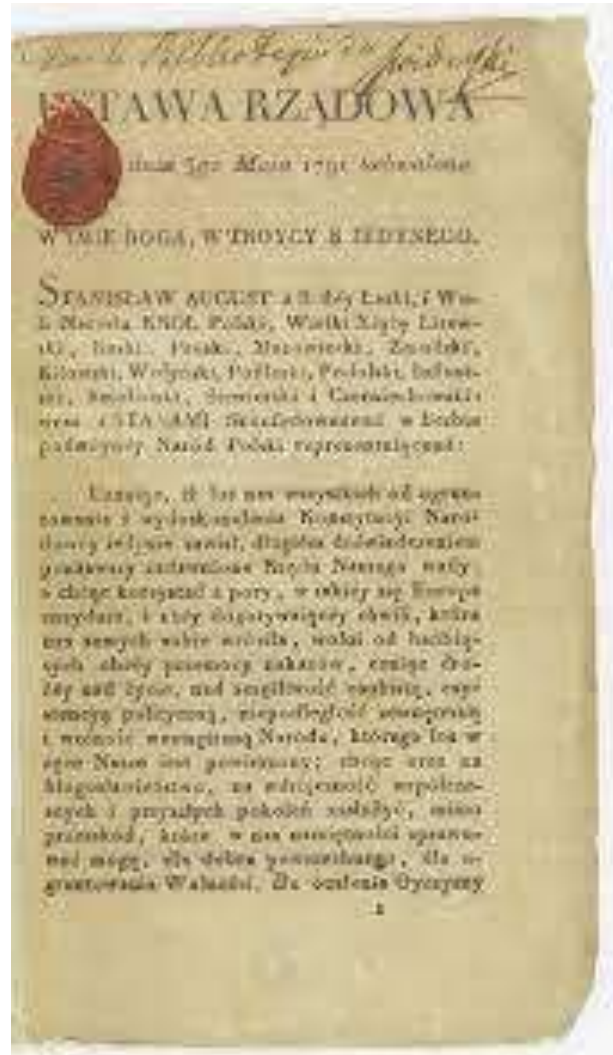 USTAWA RZĄDOWA
dnia 3go Maja 1791 uchwalona.
W IMIE BOGA, W TROYCY S. IEDYNEGO.
STANISŁAW AUGUST z Bożey Łaski, i Wo-
li Narodu KROL Polski, Wielki Xiąże Litew-
ski, Ruski, Pruski, Mazowiecki, Żmudzki,
Kiiowski, Wołyński, Podlaski, Podolski, Inflant-
ski, Smoleński, Siewierski i Czerniechowski;
wraz z STANAMI Skonfederowanemi w liczbie
podwóyney Naród Polski reprezentuiącemi:
Uznaiąc, iż los nas wszystkich od ugrun-
towania i wydoskonalenia Konstytucyi Naro-
dowey iedynie zawisł, długim doświadczeniem
poznawszy zadawnione Rządu Naszego wady;
a chcąc korzystać z pory, w iakiey się Europa
znayduie, i z tey dogorywaiącey chwili, która
nas samych sobie wróciła, wolni od hańbią-
cych obcey przemocy nakazów, ceniąc dro-
żey nad życie, nad szczęśliwość osobistą, exy-
stencyą polityczną, niepodległość zewnętrzną
i wolność wewnętrzną Narodu, którego los w
ręce Nasze iest powierzony; chcąc oraz na
błogosławieństwo, na wdzięczność współcze-
snych i przyszłych pokoleń zasłużyć, mimo
przeszkód, które w nas namiętności sprawo-
wać mogą, dla dobra powszechnego, dla u-
gruntowania Wolności, dla ocalenia Oyczyzny